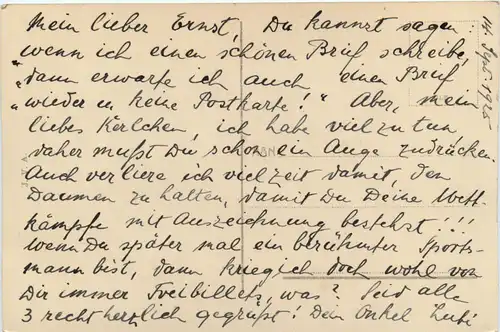 Mein lieber Ernst, Du kannst sagen:
"wenn ich einen schönen Brief schreibe,
"dann erwarte ich auch einen Brief
"wieder u keine Postkarte!" Aber, mein
liebes Kerlchen, ich habe viel zu tun
daher mußt Du schon ein Auge zudrücken.
Auch verliere ich viel Zeit damit, den
Daumen zu halten, damit Du Deine Wett-
kämpfe mit Auszeichnung bestehst!!!
Wenn Du später mal ein berühmter Sports-
mann bist, dann krieg ich doch wohl von
Dir immer Freibillets, was? Seid alle
3 recht herzlich gegrüßt! Dein Onkel
14. Sept. 1925